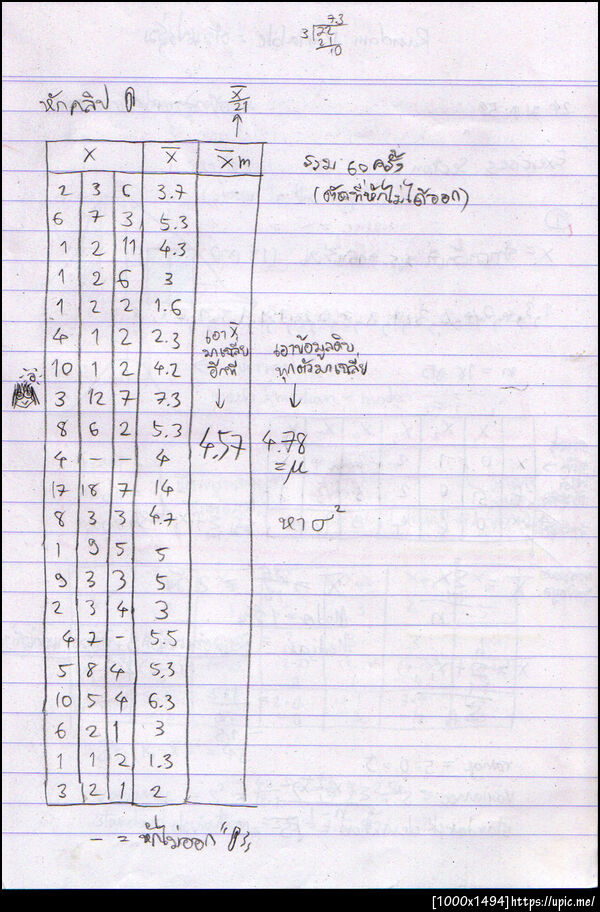 7.3
3 22
21
10
หักคลิป
X̄
21
X X̄ X̄m
รวม 60 ครั้ง
(ตัดที่หักไม่ได้ออก)
2 3 6 3.7
6 7 3 5.3
1 2 11 4.3
1 2 6 3
1 2 2 1.6
4 1 2 2.3
เอา X̄ มาเฉลี่ยอีกที
เอาข้อมูลดิบทุกตัวมาเฉลี่ย
10 1 2 4.2
3 12 7 7.3
8 6 2 5.3 4.57 4.78
= μ
4 - - 4
17 18 7 14
8 3 3 4.7 หา σ²
1 9 5 5
9 3 3 5
2 3 4 3
4 7 - 5.5
5 8 4 5.3
10 5 4 6.3
6 2 1 3
1 1 2 1.3
3 2 1 2
- = หักไม่ออก
[1000x1494]https://upic.me/